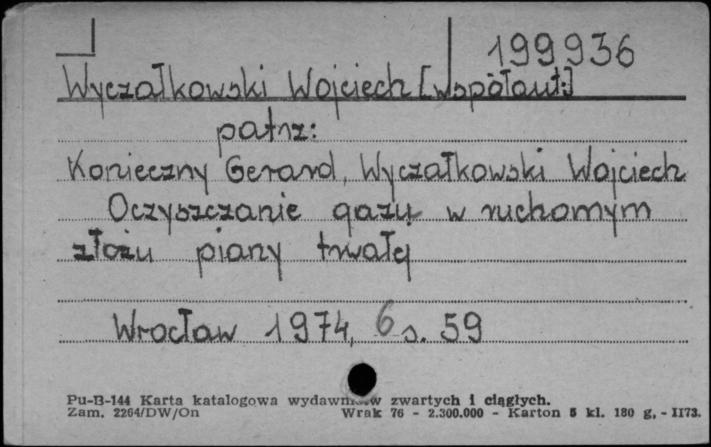 199936
Wyczałkowski Wojciech [współaut.]
patrz:
Konieczny Gerard, Wyczałkowski Wojciech
Oczyszczanie gazu w ruchomym
złożu piany trwałej
Wrocław 1974, 6 s. 59
Pu-B-144 Karta katalogowa wydawnictw zwartych i ciągłych.
Zam. 2264/DW/On Wrak 76 - 2.300.000 - Karton 5 kl. 180 g. - II73.